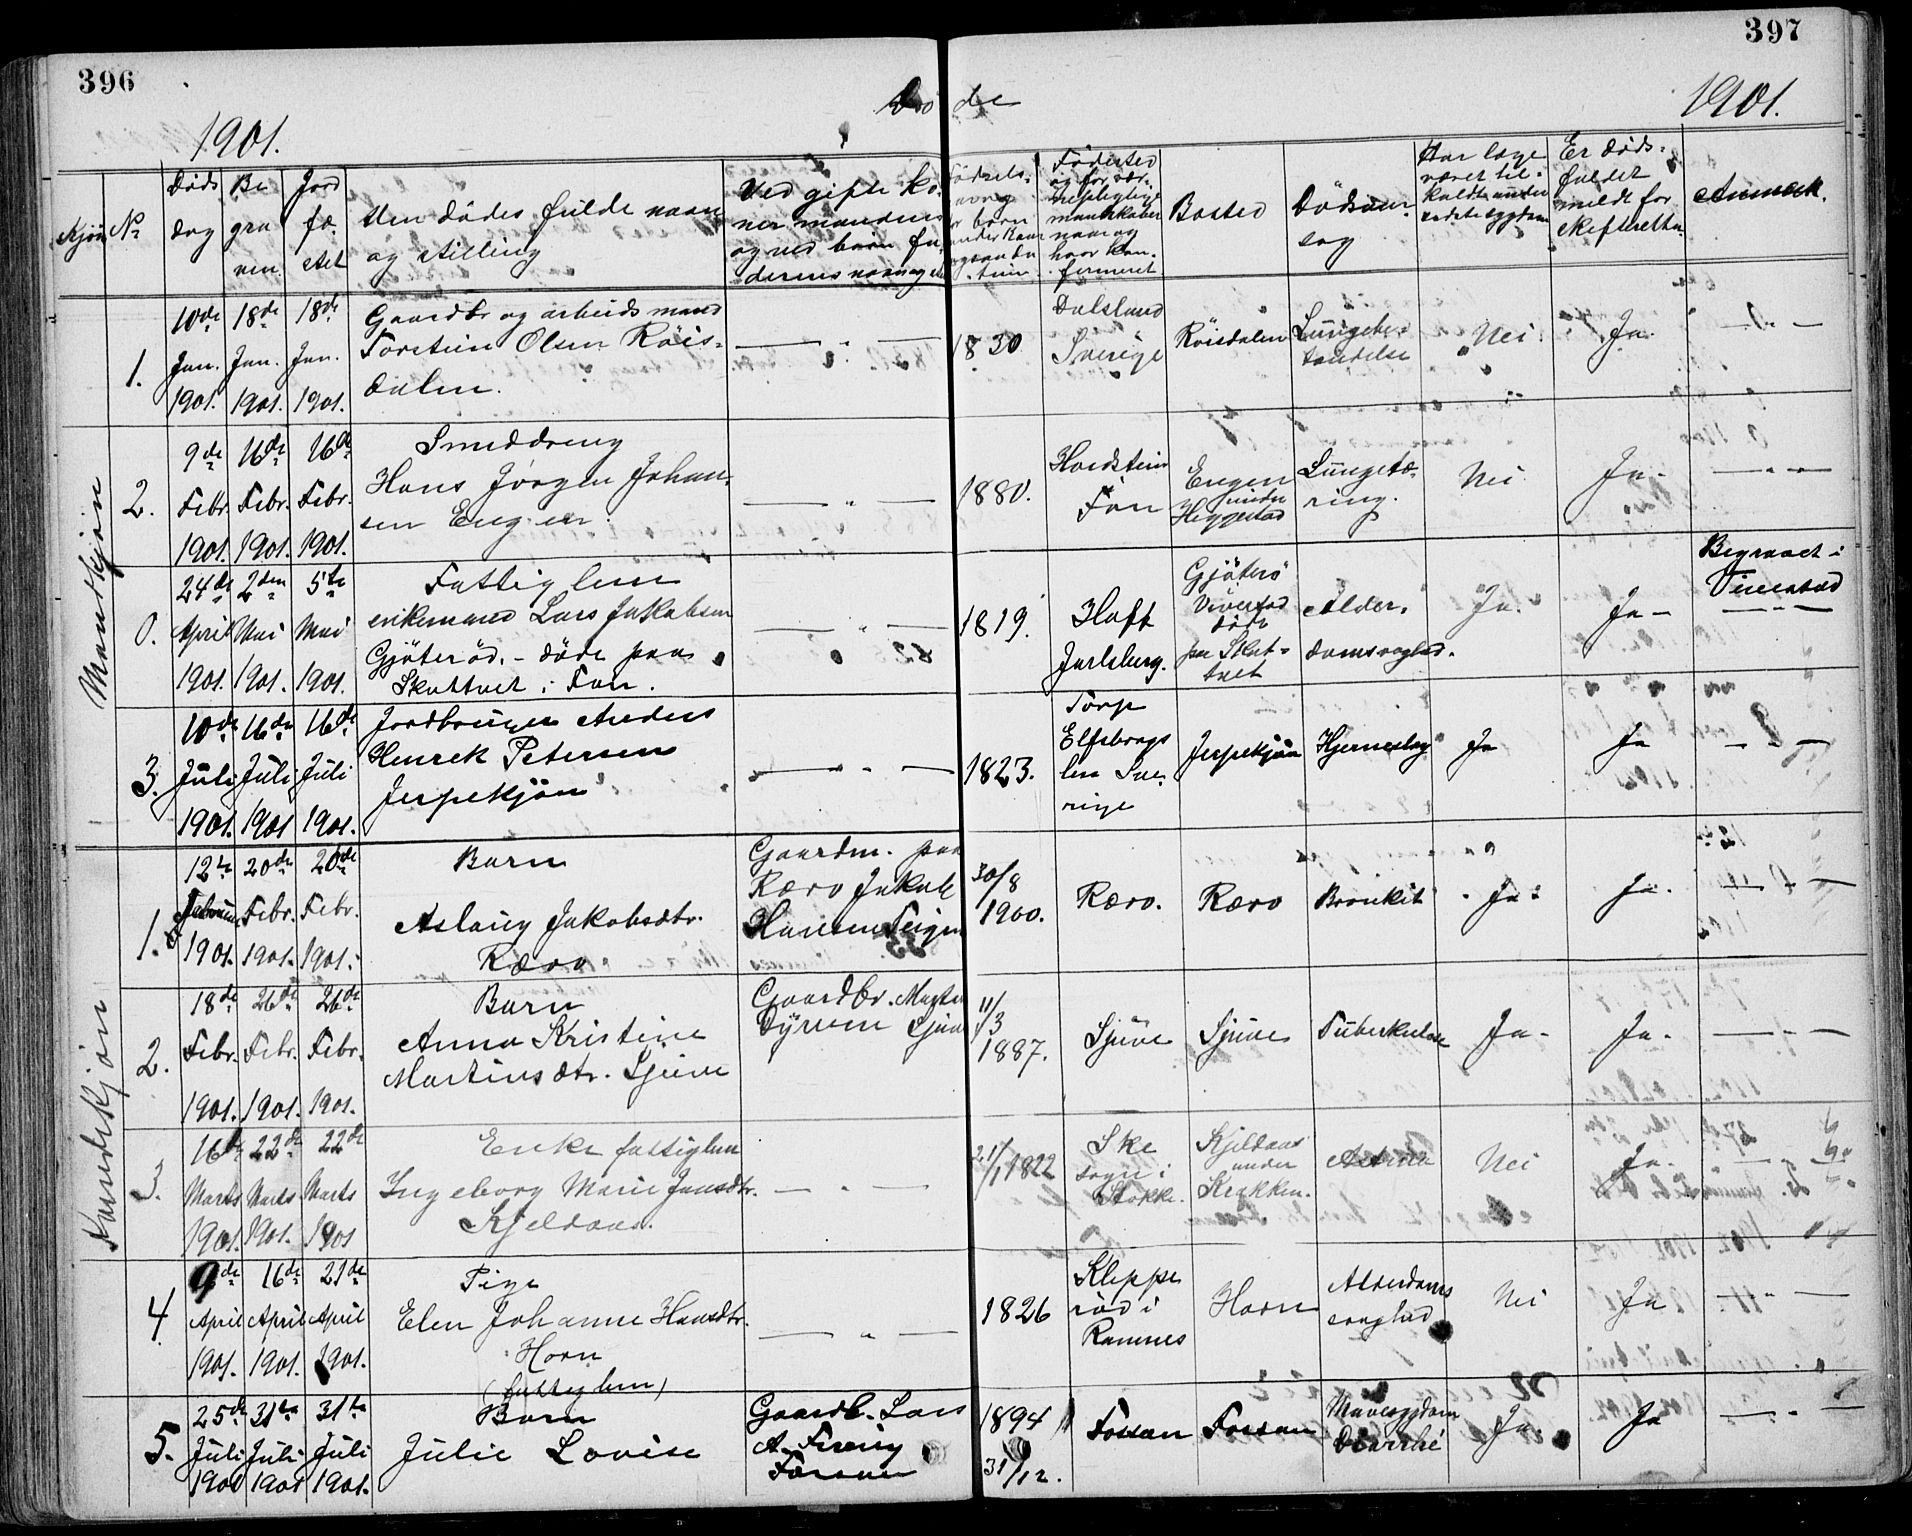 396
397
Døde
1901.
1901.
Kjøn
No
Døds
dag
Be
gra
ven
Jord
fæ
stet
Den dødes fulde navn
og stilling
Ved gifte ko-
ner mandens
og ved børn fa-
derens navn og
Fødested
Bosted
Dødsaar-
sag
Har læge
været til-
kaldt under
sidste sygdom
Er døds-
faldet
meldt for
skifteretten
Anmærk.
Mandkjøn
1.
10de
Jan.
1901.
18de
Jan.
1901.
18de
Jan.
1901.
Gaardbr og arbeidsmand
Torstein Olsen Röis-
dalen.
— " —
1830
Dalsland
Sverige
Röisdalen
Lungebe-
tændelse
Nei
Ja.
— " —
2.
9de
Febr.
1901.
16de
Febr.
1901.
16de
Febr.
1901.
Smeddreng
Hans Jörgen Johan-
sen Engen.
— " —
1880.
Fon
Engen
under
Heggestad
Lungetæ-
ring.
Nei
Ja.
— " —
0.
24de
April
1901.
2den
Mai
1901.
5te
Mai
1901.
Fattiglem
enkemand Lars Jakobsen
Gjöteröd. - döde paa
Skottvet i Fon.
— " —
1819.
Haft
Jarlsberg.
Gjöterö
Vivestad
döde
paa Skot-
tvet
Alder-
domssvaghed.
Ja.
Ja —
Begravet i
Vivestad
— " —
3.
10de
Juli
1901.
16de
Juli
1901
16de
Juli
1901.
Jordbruger Anders
Henrek Petersen
Jerpekjön
— " —
1823.
Torp
Elfsborgs
len Sve-
rige
Jerpekjön
Hjerneslag
Ja
Ja
— " —
Kvindekjøn
1.
12te
Februar
1901.
20de
Febr.
1901.
20de
Febr.
1901.
Barn
Aslaug Jakobsdtr.
Rævo
Gaardm. paa
Rævo Jakob
Hansen Teigen
30/8
1900.
Rævo.
Rævo
Bronkit
Ja
Ja.
— " —
2.
18de
Febr.
1901.
26de
Febr.
1901.
26de
Febr.
1901.
Barn
Anna Kristine
Martinsdtr. Sjuve
Gaardbr.
11/3
1887.
Sjuve
Sjuve
Tuberkulose
Ja.
Ja.
— " —
3.
16de
Marts
1901.
22de
Marts
1901.
22de
Marts
1901
Enke fattiglem
Ingeborg Marie Jansdtr.
Kjeldaas.
— " —
21/1 1822
Ske
sogn i
Stokke.
Kjeldaas
under
Krakken.
Nei
Ja.
— " —
4.
9de
April
1901.
16de
April
1901.
21de
April
1901.
Pige
Elen Johanne Hansdtr.
Horn
(fattiglem)
— " —
1826
Kleppe
röd i
Ramnes
Horn
Alderdoms
svaghed
Nei
Ja
— " —
5.
25de
Juli
1901
31te
Juli
1901
31te
Juli
1901.
Barn
Julie Lovise
Gaardb. Lars
A.
Fossan
1894
31/12.
Fossan
Fossan
Mavesygdom
Diarrhé
Ja
Ja
— " —